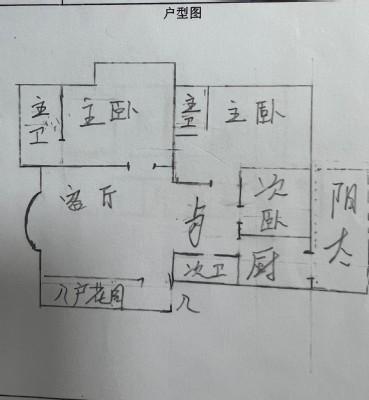 户型图
主卫
主卧
主卫
主卧
客厅
次卧
阳台
次卫
厨
入户花园
入